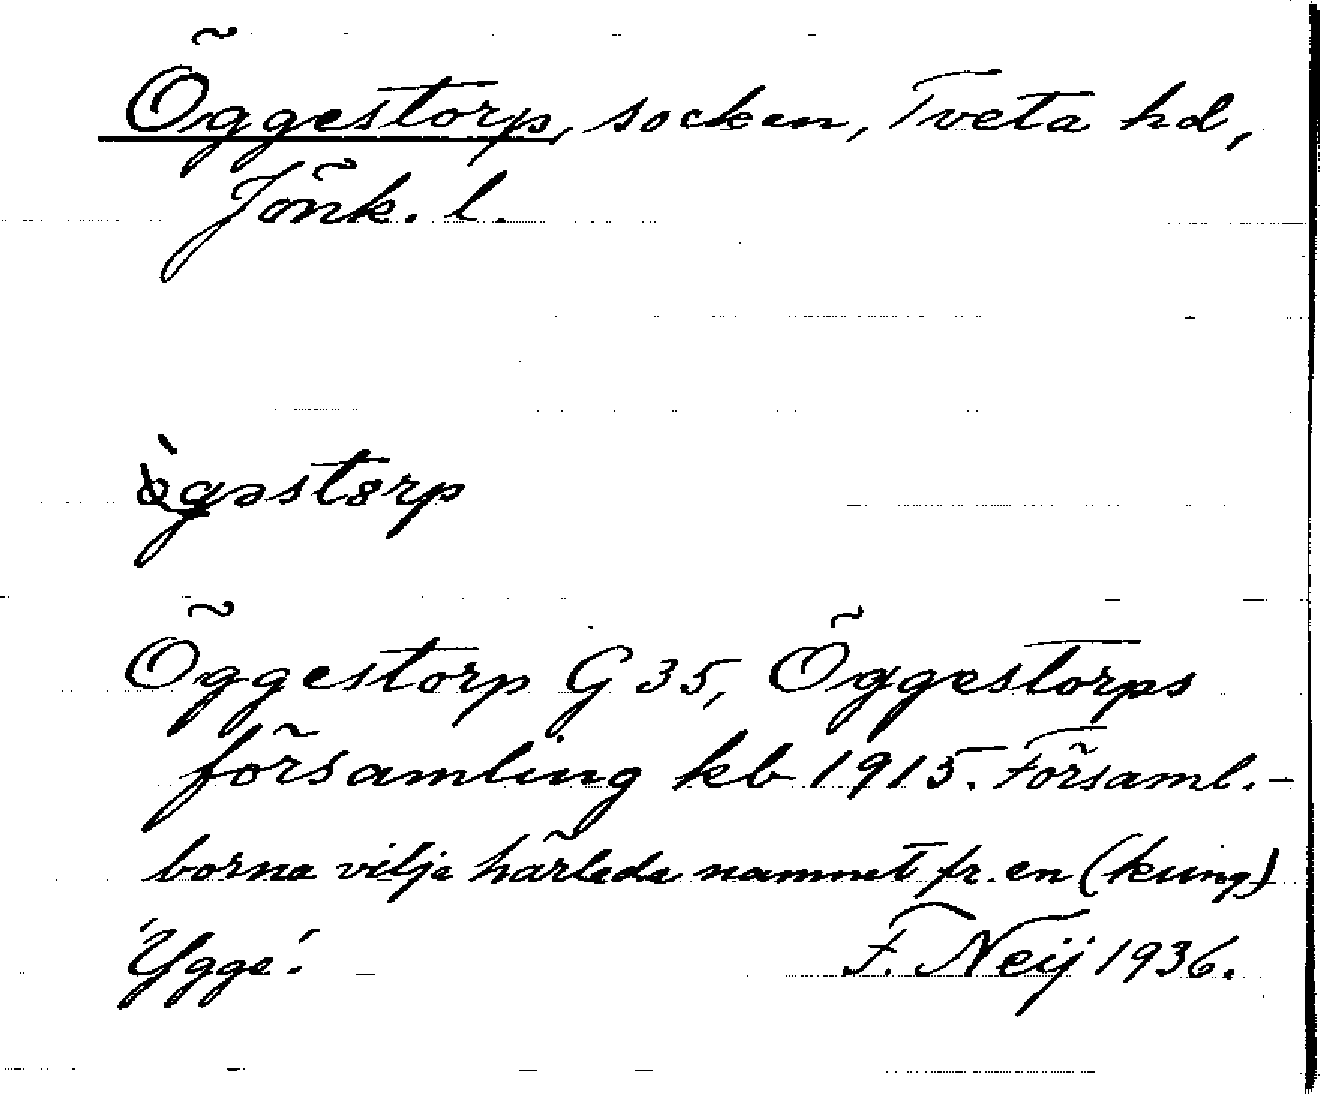 Öggestorp, socken, Tveta hd,
Jönk. l.
ògəstorp
Öggestorp G 35, Öggestorps
församling kb 1915. Församl.-
borna vilja härleda namnet fr. en (kung)
'Ygge'. F. Neij 1936.